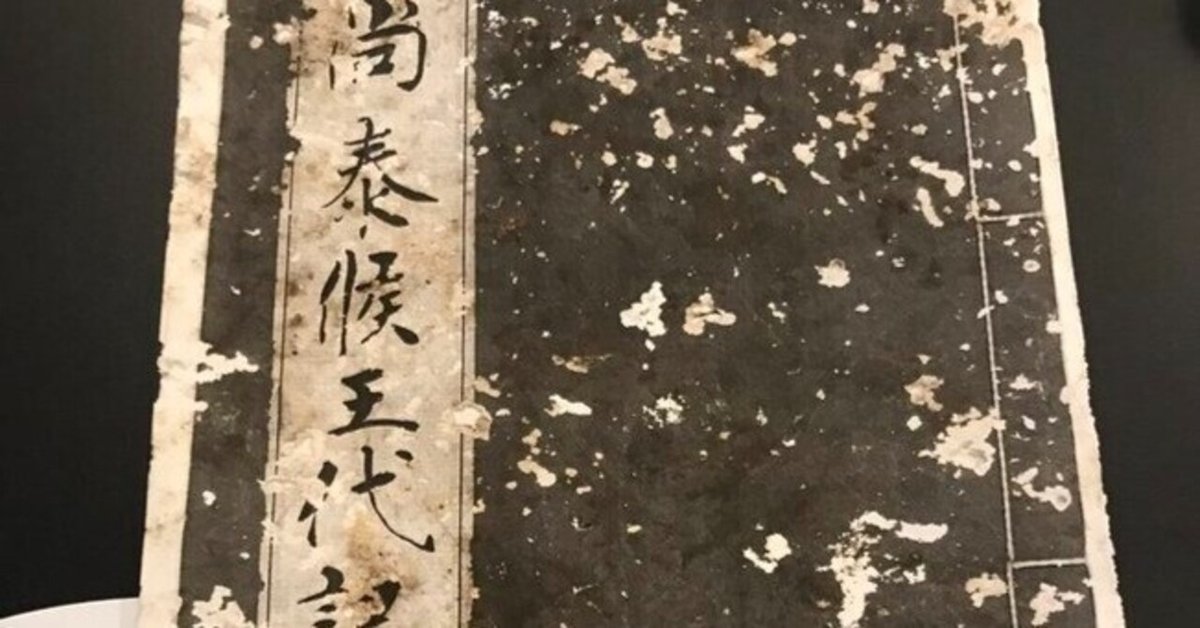 尚泰候王代記